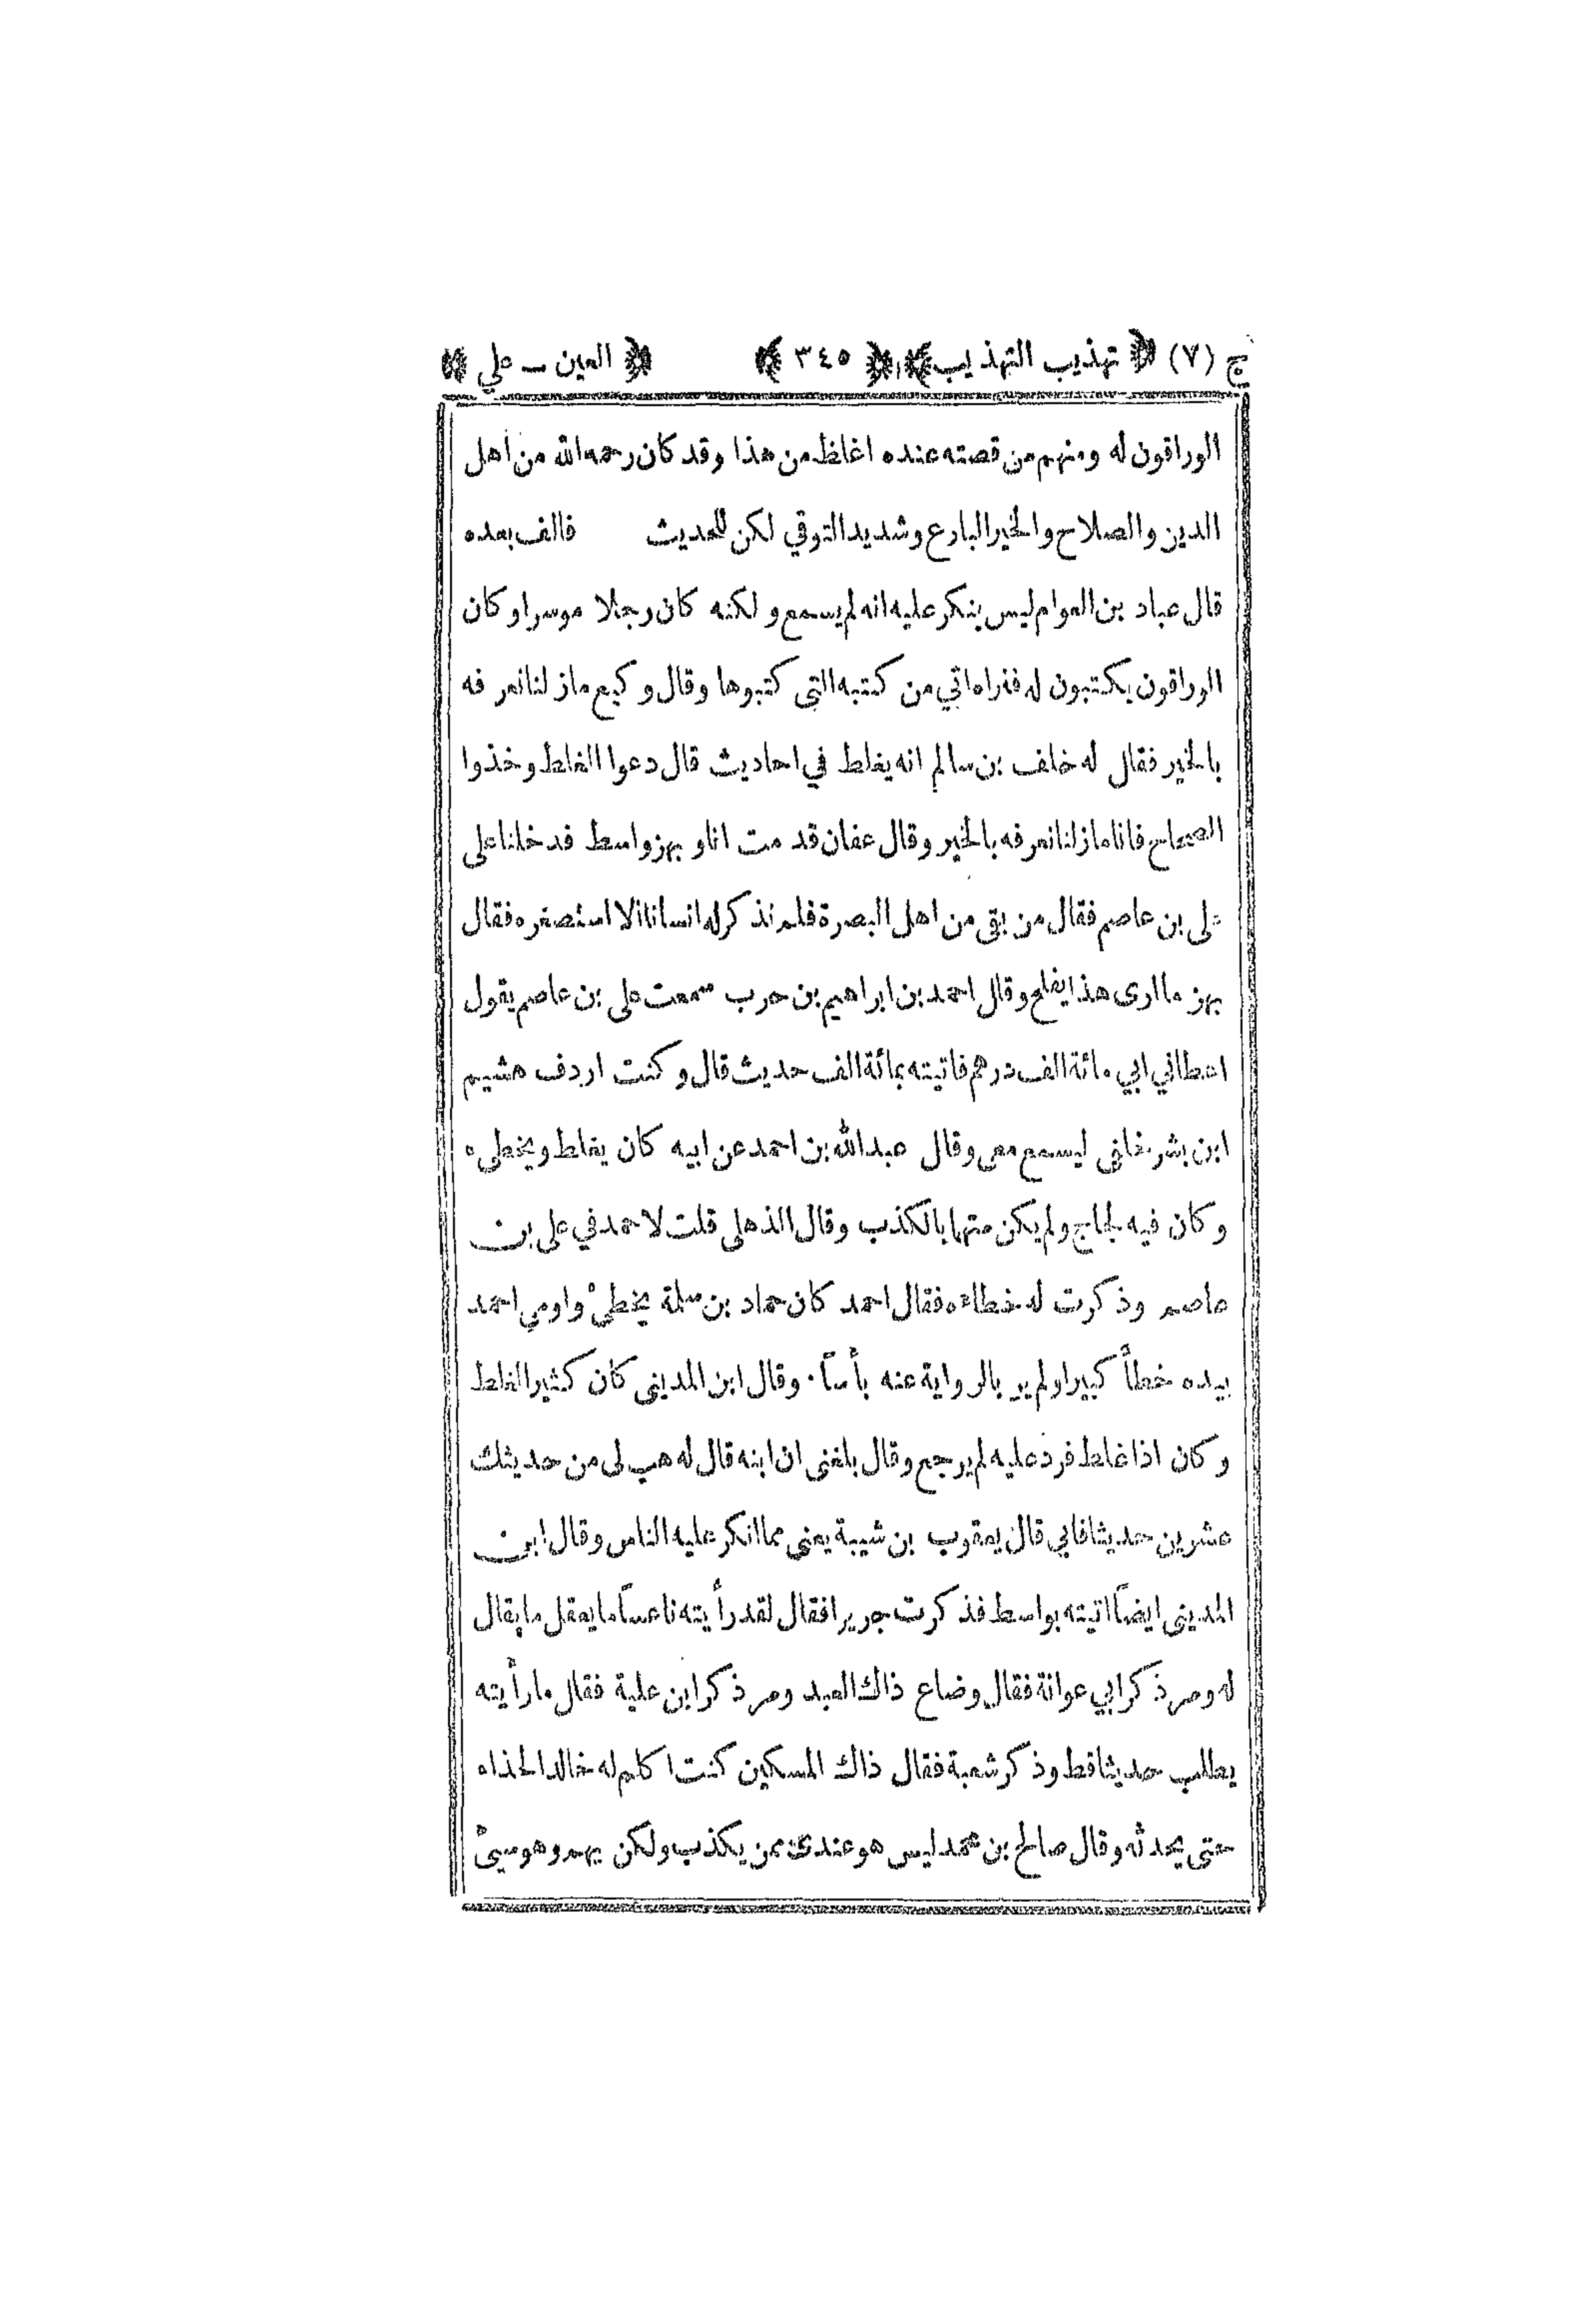 ج (٧) ﴿ تهذيب التهذيب ﴾ ﴿ ٣٤٥ ﴾ ﴿ العين ـ علي ﴾
الوراقون له ومنهم من قصته عنده اغلظ من هذا وقد كان رحمه الله من اهل
الدين والصلاح والخير البارع وشديد التوقي لكن للحديث فالف بعده
قال عباد بن العوام ليس ينكر عليه انه لم يسمع ولكنه كان رجلا موسرا وكان
الوراقون يكتبون له فنراه اتي من كتبه التي كتبوها وقال وكيع ما زلنا نعرفه
بالخير فقال له خلف بن سالم انه يغلط في احاديث قال دعوا الغلط وخذوا
الصحاح فانا ما زلنا نعرفه بالخير وقال عفان قدمت انا و بهز واسط فدخلنا على
على بن عاصم فقال من بقى من اهل البصرة فلم نذكر له انسانا الا استصغره فقال
بهز ما ارى هذا يفلح وقال احمد بن ابراهيم بن حرب سمعت على بن عاصم يقول
اعطاني ابي مائة الف درهم فاتيته بمائة الف حديث قال وكنت اردف هشيم
ابن بشر خلفي ليسمع معي وقال عبد الله بن احمد عن ابيه كان يغلط ويخطىء
وكان فيه لجاج ولم يكن متهما بالكذب وقال الذهلى قلت لاحمد في على بن
عاصم وذكرت له خطاءه فقال احمد كان حماد بن سلمة يخطئ واومي احمد
بيده خطأً كبيرا ولم ير بالرواية عنه بأساً. وقال ابن المديني كان كثير الغلط
وكان اذا غلط فرد عليه لم يرجع وقال بلغنى ان ابنه قال له هب لى من حديثك
عشرين حديثا فابي قال يعقوب بن شيبة يعنى مما انكر عليه الناس وقال ابن
المديني ايضاً اتيته بواسط فذكرت جريرا فقال لقد رأيته ناعساً ما يعقل ما يقال
له ومر ذكر ابي عوانة فقال وضاع ذاك العبد ومر ذكر ابن علية فقال ما رأيته
يطلب حديثا قط وذكر شعبة فقال ذاك المسكين كنت اكلم له خالد الحذاء
حتى يحدثه وقال صالح بن محمد ليس هو عندى ممن يكذب ولكن يهم وهو سيئ